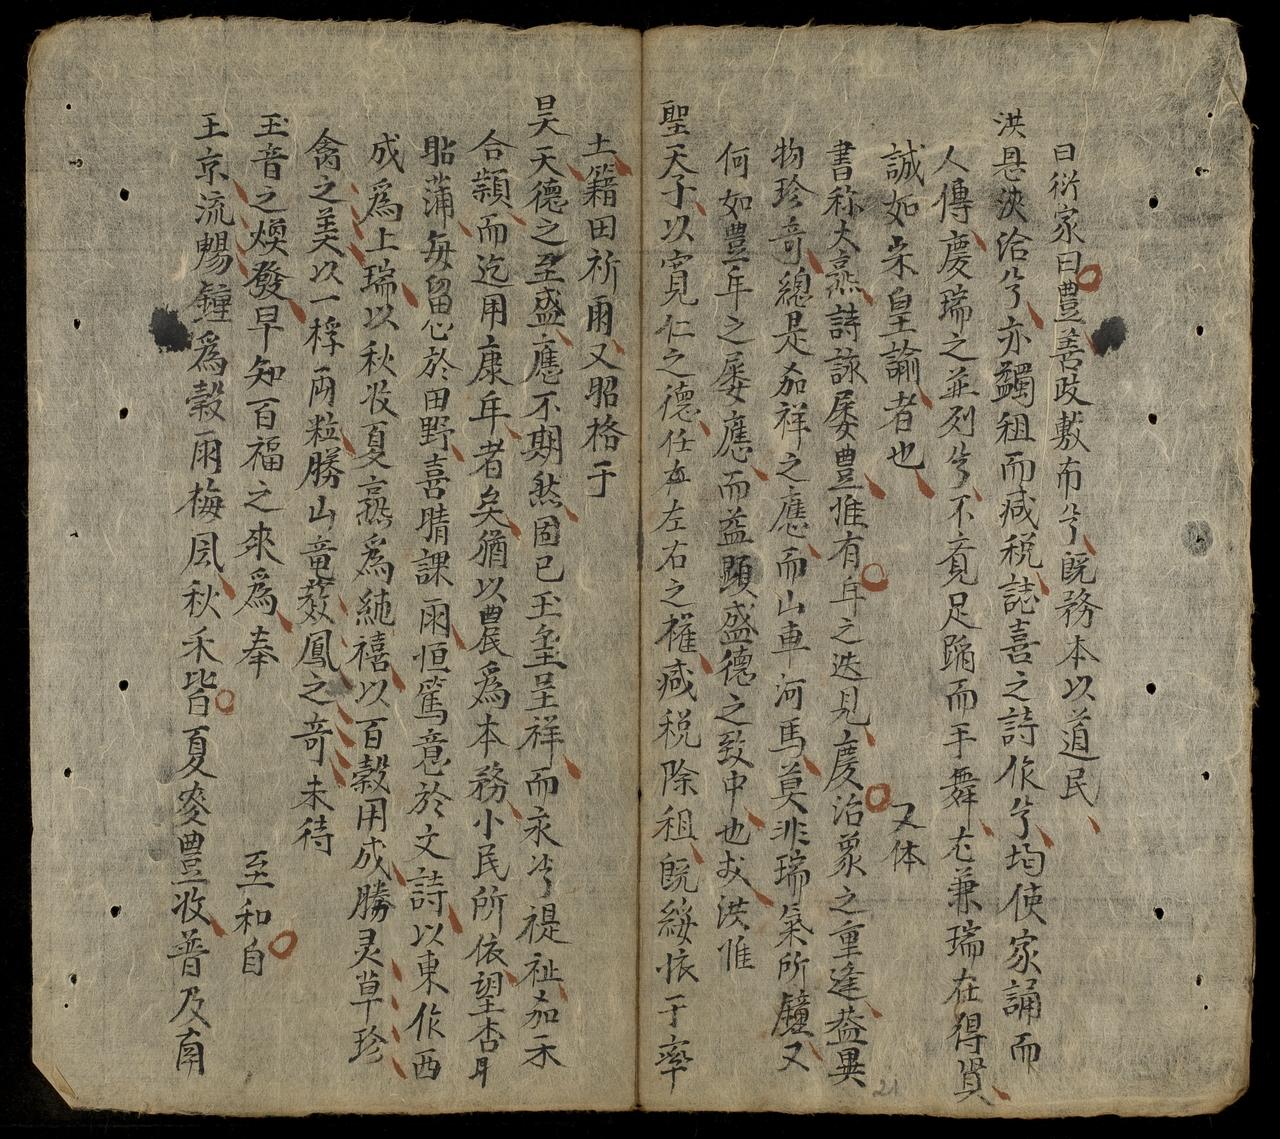 曰衍家曰豊善政敷布兮既務本以道民
洪恩浹洽兮亦蠲租而减税誌喜之詩作兮均使家誦而
人傳慶瑞之並列兮不覺足蹈而手舞尤兼瑞在得賢
誠如宋皇諭者也 又体
書称大燕詩詠屡豊惟有年之迭見慶治象之重逢葢異
物珍奇總是加祥之應而山車河馬莫非瑞氣所鐘又
何如豊年之屡應而益顕盛德之致中也㳟洪惟
聖天子以寛仁之德任左右之權减税除租既綏懷于率
土籍田祈雨又昭格于
昊天德之至盛應不期然固已玉燭呈祥而永兮禔祉加禾
合頴而迄用康年者矣猶以農為本務小民所依望杏耳
貼蒲每留心於田野喜晴課雨恒篤意於文詩以東作西
成為上瑞以秋收夏熟為純禧以百穀用成勝灵草珍
禽之美以一稃兩粒勝山竜薮鳳之奇未待
玉音之煥發早知百福之來為奉 至和自
王京流暢鐘為穀雨梅風秋禾皆夏麥豊收普及南